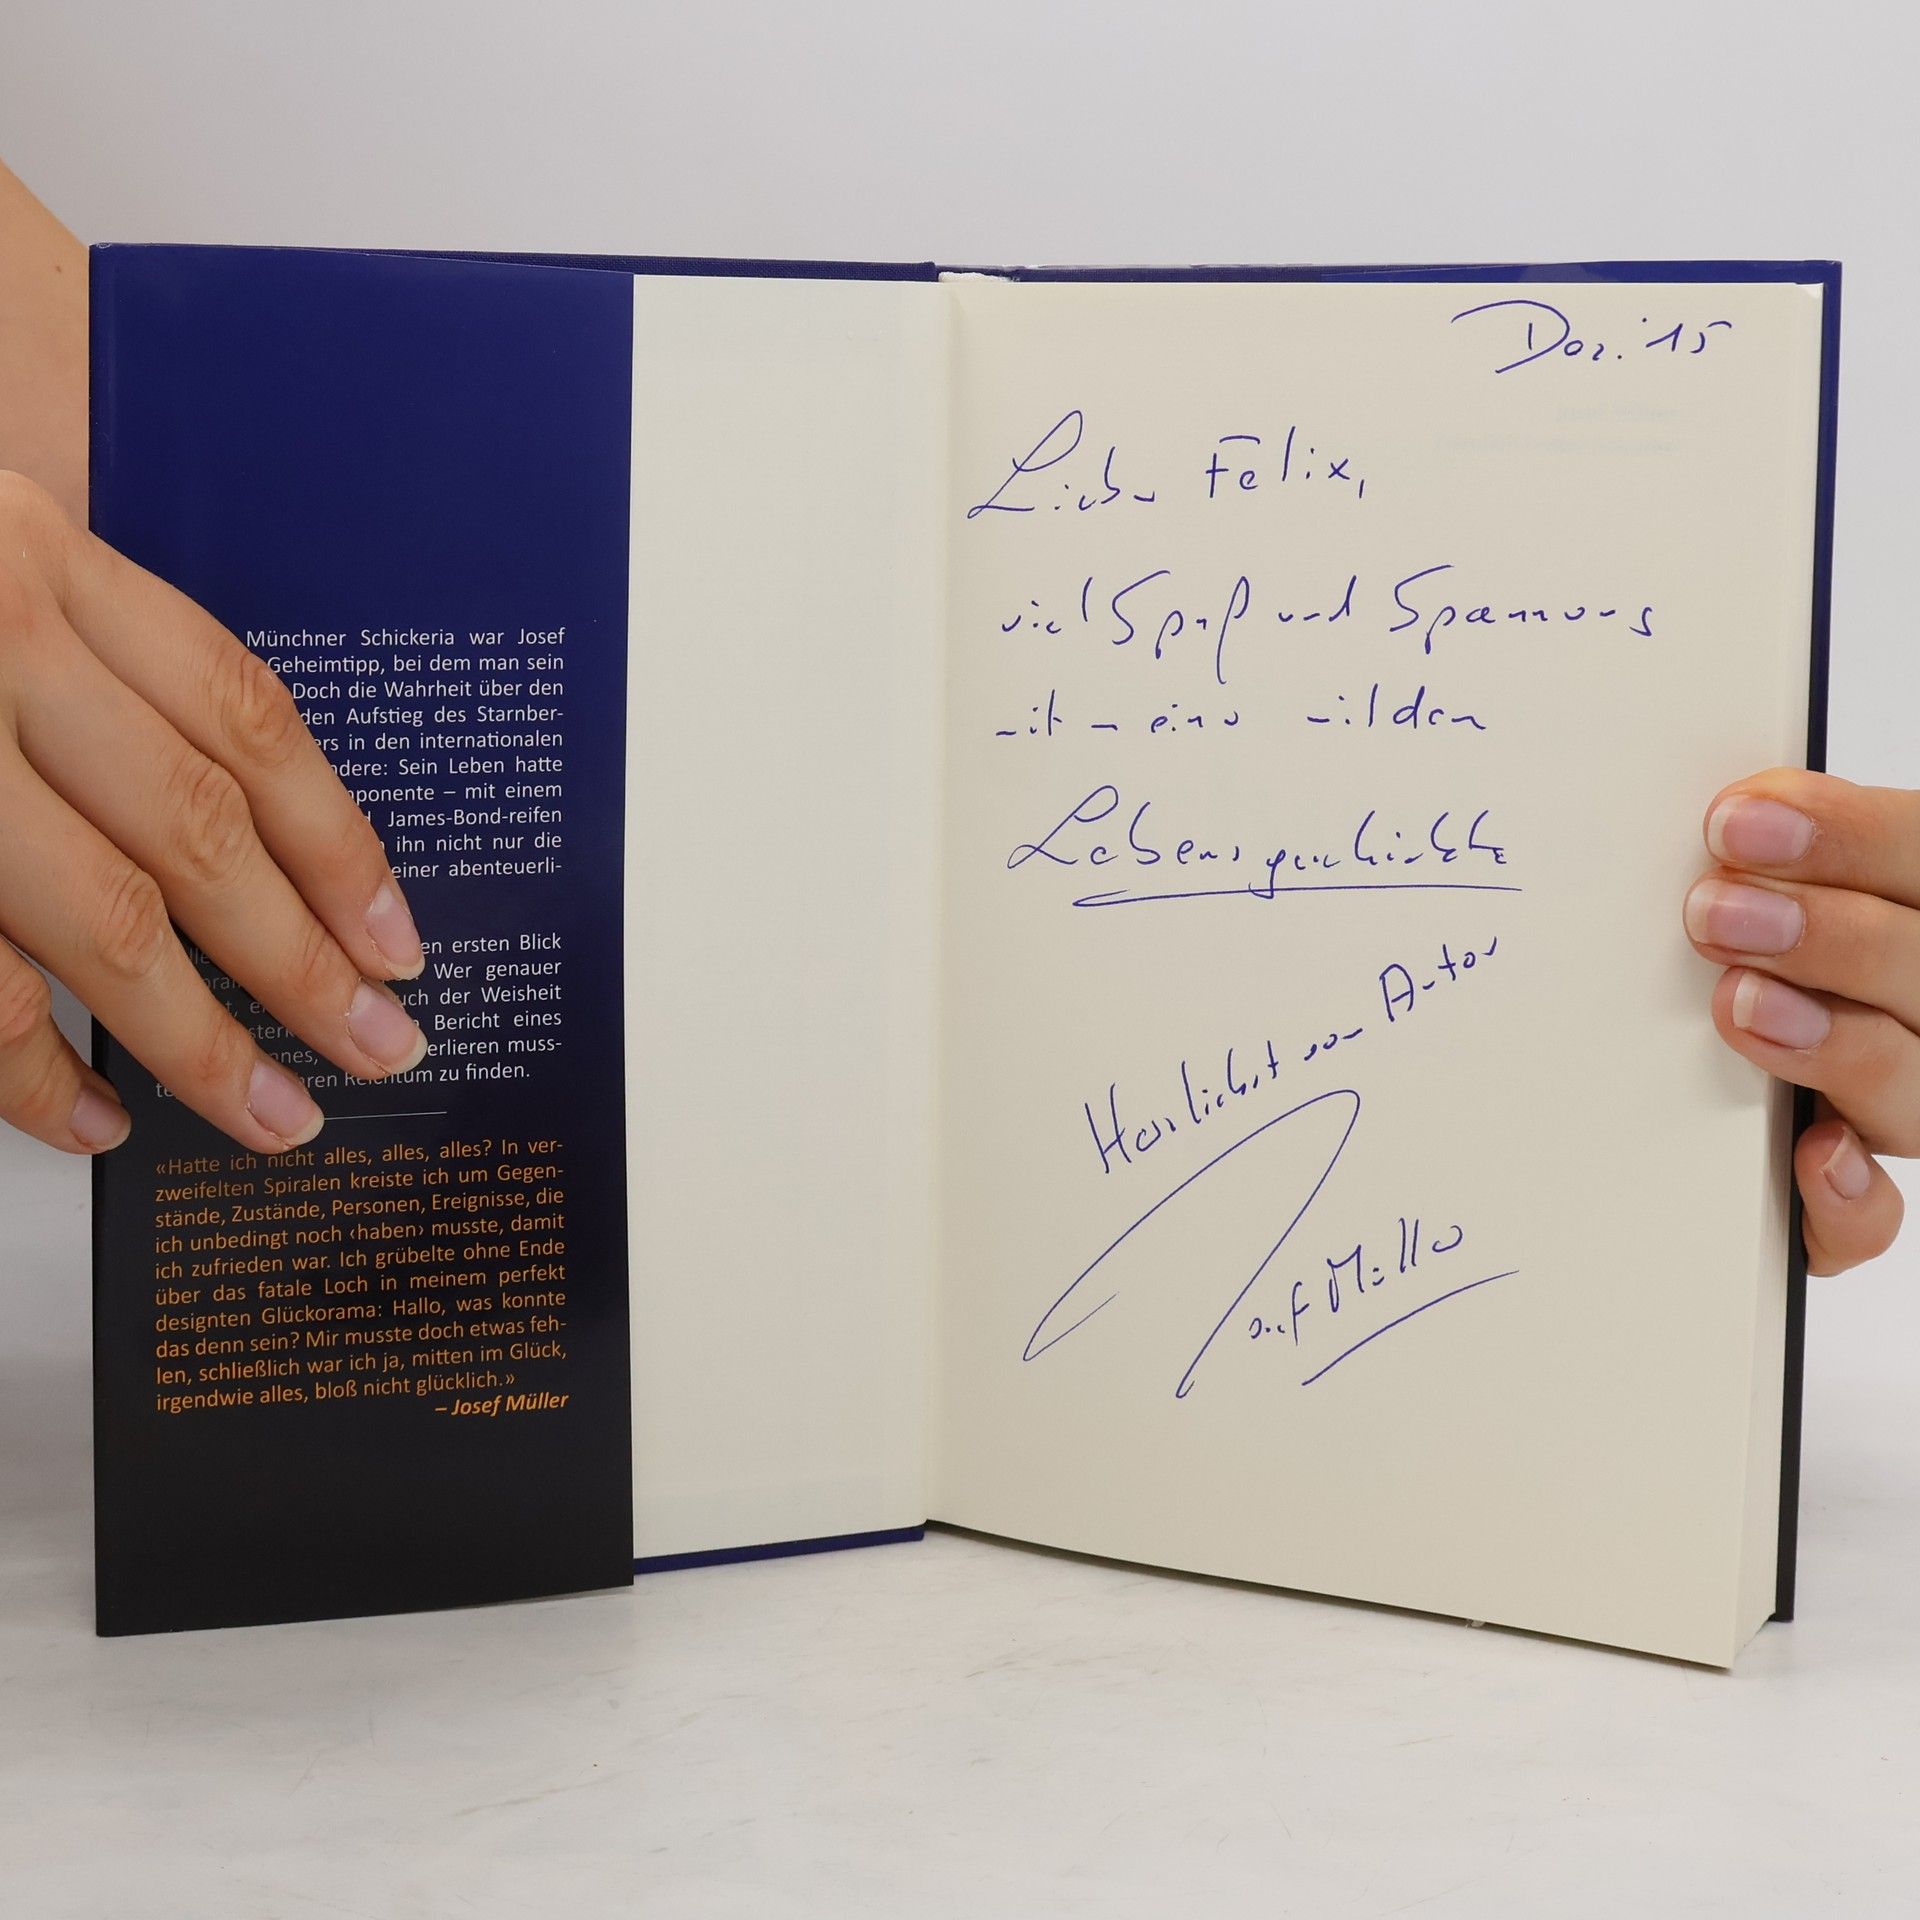 Münchner Schickeria war Josef
Geheimtipp, bei dem man sein
Doch die Wahrheit über den
den Aufstieg des Starnber-
ers in den internationalen
ndere: Sein Leben hatte
mponente – mit einem
d James-Bond-reifen
n ihn nicht nur die
einer abenteuerli-
en ersten Blick
Wer genauer
uch der Weisheit
Bericht eines
nnes, erlieren muss-
te hren Reichtum zu finden.
«Hatte ich nicht alles, alles, alles? In ver-
zweifelten Spiralen kreiste ich um Gegen-
stände, Zustände, Personen, Ereignisse, die
ich unbedingt noch ‹haben› musste, damit
ich zufrieden war. Ich grübelte ohne Ende
über das fatale Loch in meinem perfekt
designten Glückorama: Hallo, was konnte
das denn sein? Mir musste doch etwas feh-
len, schließlich war ich ja, mitten im Glück,
irgendwie alles, bloß nicht glücklich.»
– Josef Müller
Dez. '15
Lieber Felix,
viel Spaß und Spannung
mit meiner wilden
Lebensgeschichte
Herzlichst vom Autor
Josef Müller